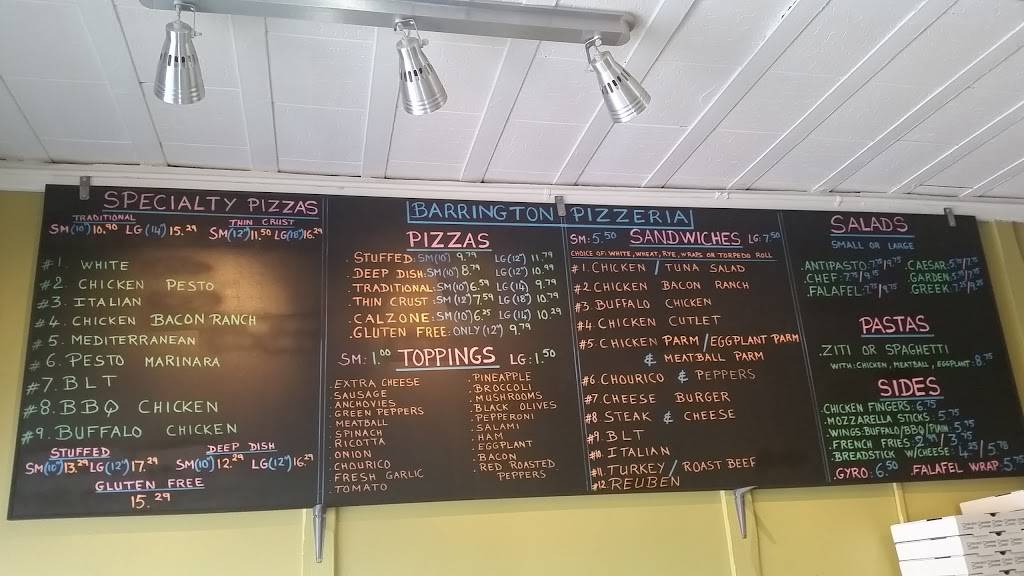 SPECIALTY PIZZAS
TRADITIONAL THIN CRUST
SM(10")10.90 LG(14")15.29 SM(12")11.50 LG(18")16.29
#1. WHITE
#2 CHICKEN PESTO
#3. ITALIAN
#4. CHICKEN BACON RANCH
#5. MEDITERRANEAN
#6. PESTO MARINARA
#7. BLT
#8. BBQ CHICKEN
#9. BUFFALO CHICKEN
STUFFED DEEP DISH
SM(10")13.29 LG(12")17.29 SM(10")12.29 LG(12")16.29
GLUTEN FREE
15.29
BARRINGTON PIZZERIA
PIZZAS
STUFFED: SM(10") 9.79 LG(12") 11.79
DEEP DISH: SM(10") 8.79 LG(12") 10.99
TRADITIONAL: SM(10") 6.59 LG(14") 9.79
THIN CRUST: SM(12") 7.59 LG(18") 10.79
CALZONE: SM(10") 6.25 LG(14") 10.29
GLUTEN FREE: ONLY (12") 9.79
SM: 1.00 TOPPINGS LG: 1.50
.EXTRA CHEESE
SAUSAGE
ANCHOVIES
GREEN PEPPERS
MEATBALL
SPINACH
RICOTTA
ONION
CHOURICO
FRESH GARLIC
TOMATO
.PINEAPPLE
BROCCOLI
MUSHROOMS
BLACK OLIVES
PEPPERONI
SALAMI
HAM
EGGPLANT
BACON
RED ROASTED
PEPPERS
SM: 5.50 SANDWICHES LG: 7.50
CHOICE OF: WHITE, WHEAT, RYE, WRAPS OR TORPEDO ROLL
#1. CHICKEN / TUNA SALAD
#2. CHICKEN BACON RANCH
#3 BUFFALO CHICKEN
#4 CHICKEN CUTLET
#5 CHICKEN PARM / EGGPLANT PARM
& MEATBALL PARM
#6 CHOURICO & PEPPERS
#7. CHEESE BURGER
#8. STEAK & CHEESE
#9. BLT
#10. ITALIAN
#11. TURKEY / ROAST BEEF
#12. REUBEN
SALADS
SMALL OR LARGE
.ANTIPASTO
.CHEF
.FALAFEL
.CAESAR
GARDEN
.GREEK
PASTAS
.ZITI OR SPAGHETTI
WITH: CHICKEN, MEATBALL, EGGPLANT: 8.75
SIDES
.CHICKEN FINGERS: 6.75
.MOZZARELLA STICKS: 5.75
.WINGS: BUFFALO/BBQ/PLAIN 5.75
FRENCH FRIES 2.99/3.75
.BREADSTICK W/CHEESE: 4.25/5.75
.GYRO: 6.50 .FALAFEL WRAP 5.75